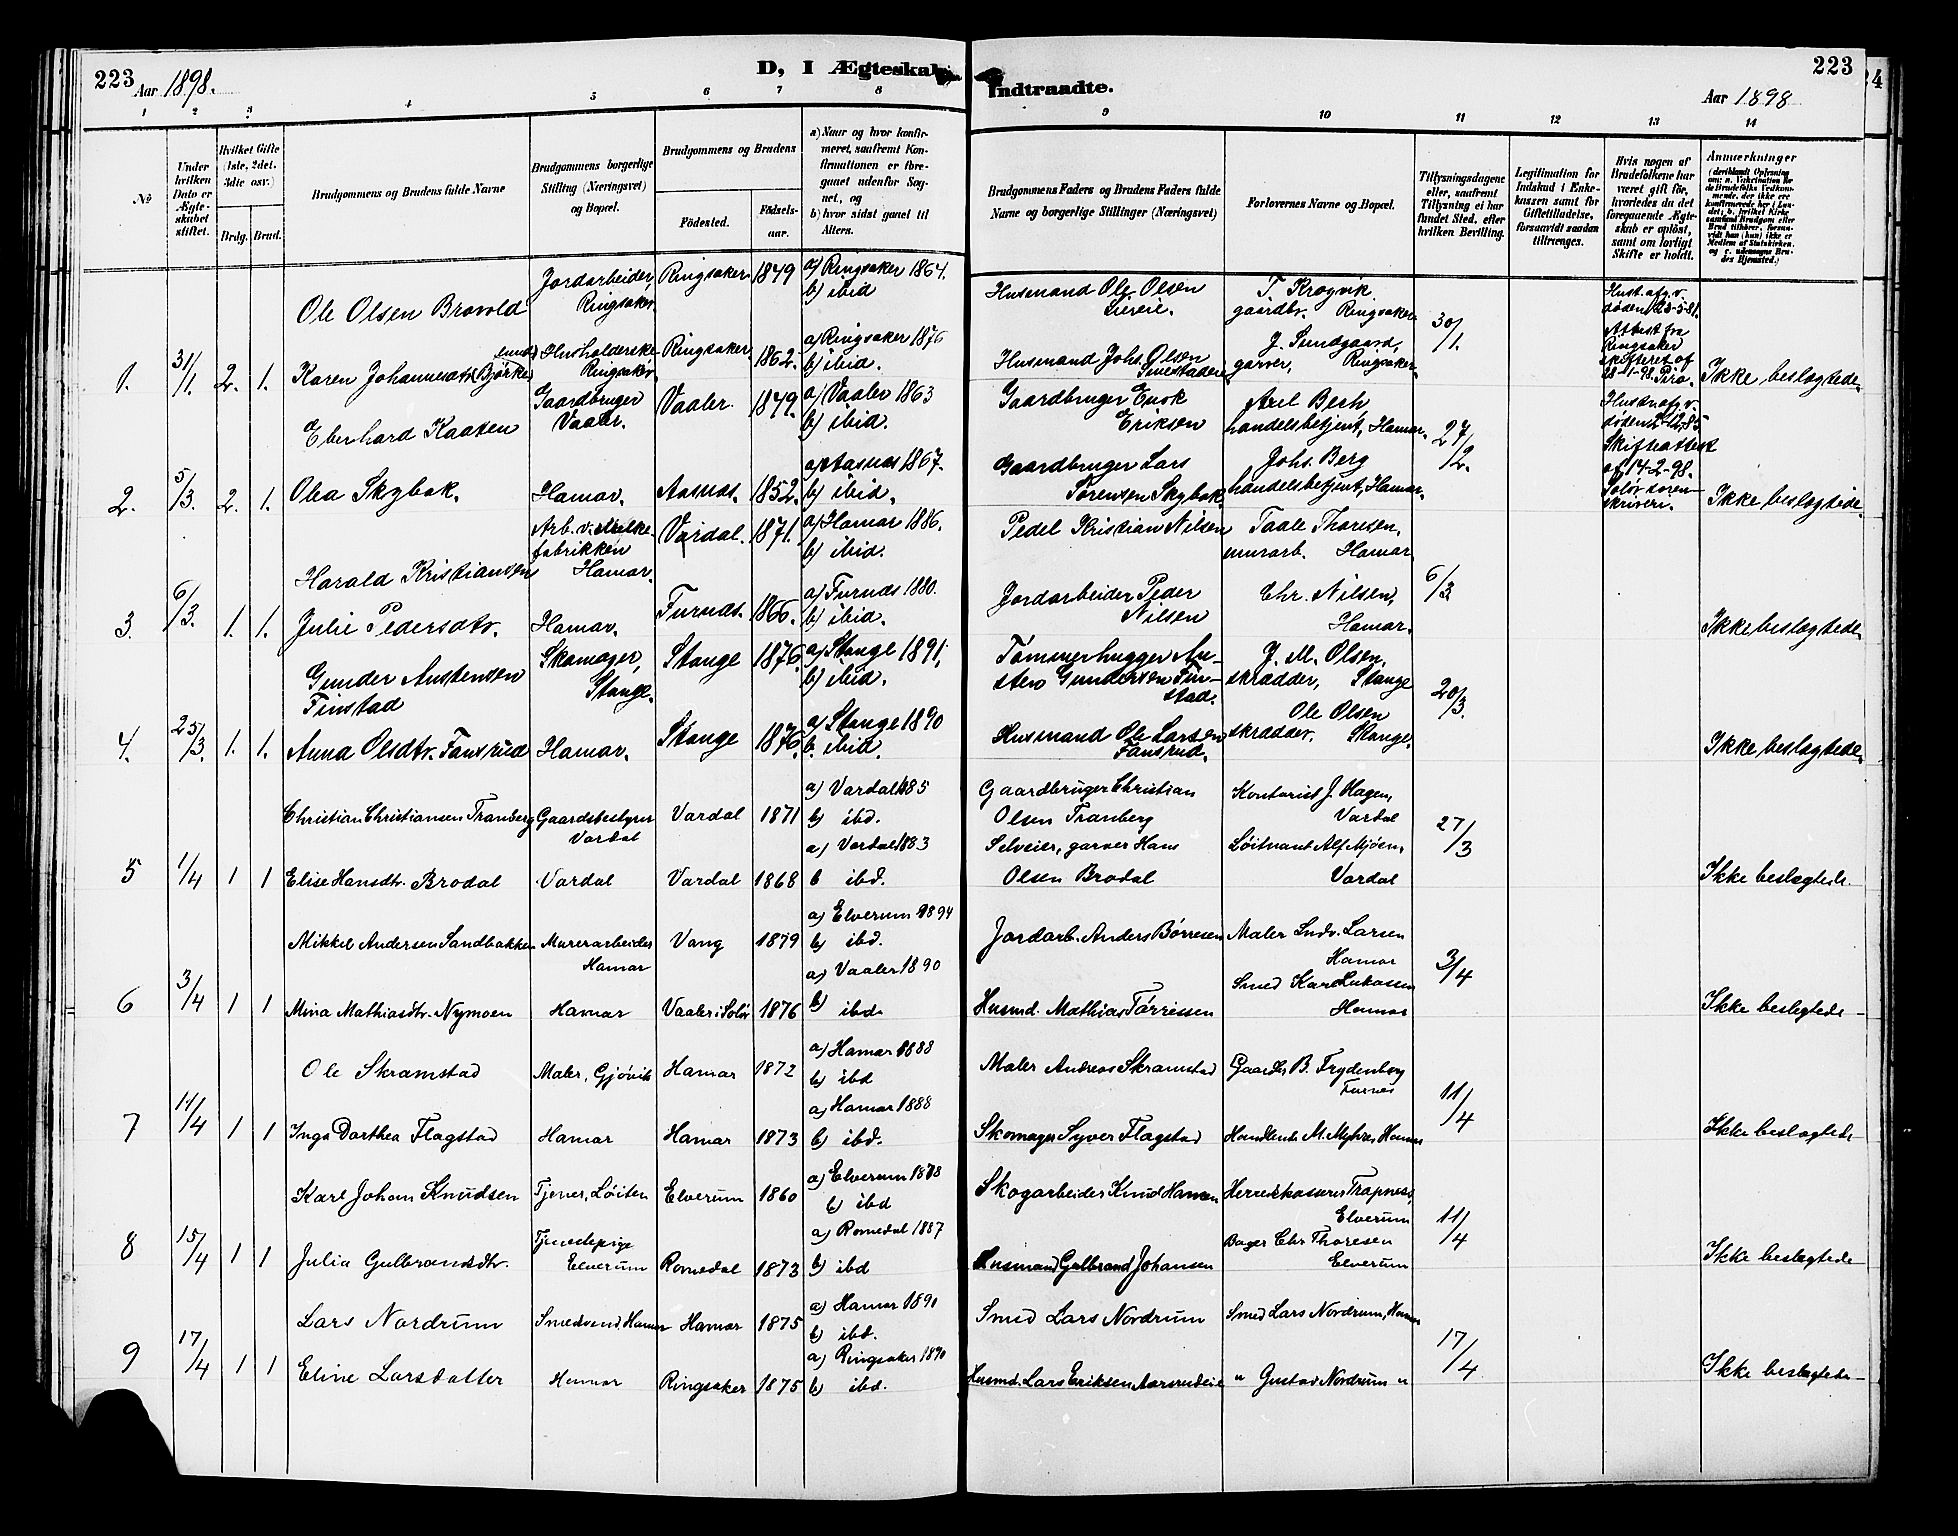 223
Aar 1898.
D, I Ægteskab
Indtraadte.
Aar 1898
223
1 2 3 4 5 6 7 8 9 10 11 12 13 14
No
Under hvilken Dato er Ægteskabet stiftet.
Hvilket Gifte (1ste, 2det. 3die osv.)
Brdg. Brud.
Brudgommens og Brudens fulde Navne
Brudgommens borgerlige Stilling (Næringsvei) og Bopæl.
Brudgommens og Brudens
Fødested.
Fødselsaar.
a) Naar og hvor konfirmeret, saafremt Konfirmationen er foregaaet udenfor Sognet, og
b) hvor sidst gaaet til Alters.
Brudgommens Faders og Brudens Faders fulde Navne og borgerlige Stillinger (Næringsvei)
Forlovernes Navne og Bopæl.
Tillysningsdagene eller, saafremt Tillysning ei har fundet Sted, efter hvilken Bevilling.
Legitimation for Indskud i Enkekassen samt for Giftetilladelse, forsaavidt saadan tiltrænges.
Hvis nogen af Brudefolkene har været gift før, hvorledes da det foregaaende Ægteskab er opløst, samt om lovligt Skifte er holdt.
Anmærkninger
Ole Olsen Brovold Jordarbeider, Ringsaker. Ringsaker 1849 a) Ringsaker 1864. b) ibid Husmand Ole Olsen Lieeie. T. Krogvik gaardbr. Ringsaker
1. 31/1. 2. 1. Karen Johannesdtr. Husholderske Ringsaker. Ringsaker 1862. a) Ringsaker 1876 b) ibid. Husmand Johs. Olsen J. Sundgaard, garver, Ringsaker. 30/1. Hust. afg. v. døden 23-5-81. Attest fra Ringsaker skifteret af 28-1-98. Ikke beslægtede
Eberhard Kaaten Gaardbruger Vaaler. Vaaler. 1849. a) Vaaler 1863 b) ibid. Gaardbruger Enok Eriksen Axel Berh handelsbetjent, Hamar.
2. 5/3. 2. 1. Oba Skybak. Hamar. Aasnes. 1852. a) Aasnes 1867. b) ibid. Gaardbruger Lars Sørensen Skybak. Johs. Berg handelsbetjent, Hamar. 27/2. Hustru afg. v. døden Skifteattest af 14-2-98. Solør sorenskriveri. Ikke beslægtede
Harald Kristiansen Arb. v. Melkefabrikken Hamar. Vardal. 1871. a) Hamar 1886. b) ibid. Pedel Kristian Nilsen Taale Thoresen, murarb. Hamar
3. 6/3. 1. 1. Julie Pedersdtr. Hamar. Furnes. 1866. a) Furnes 1880. b) ibid. Jordarbeider Peder Nilsen Chr. Nilsen, Hamar. 6/3 Ikke beslægtede
Gunder Austensen Finstad Skomager, Stange. Stange 1876. a) Stange 1891. b) ibid. Tømmerhugger Austen Gundersen Finstad. J. M. Olsen, skrædder, Stange
4. 25/3. 1. 1. Anna Olsdtr. Fansrud Hamar. Stange 1876. a) Stange 1890 b. ibid. Husmand Ole Larsen Fansrud. Ole Olsen skrædder. Stange. 20/3. Ikke beslægtede
Christian Christiansen Tranberg Gaardsbestyrer Vardal Vardal 1871 a) Vardal 1885 b) ibd. Gaardbruger Christian Olsen Tranberg Kontorist J. Hagen, Vardal
5 1/4 1 1 Elise Hansdtr. Brodal Vardal Vardal 1868 a) Vardal 1883 b ibd. Selveier, garver Hans Olsen Brodal Løitnant Alf Mjøen, Vardal 27/3 Ikke beslægtede.
Mikkel Andersen Sandbakken Murerarbeider Hamar Vang 1879 a) Elverum 1894 b) ibd. Jordarb. Anders Børresen Maler Ludv. Larsen Hamar
6 3/4 1 1 Mina Mathiasdtr. Nymoen Hamar Vaaler i Solør 1876 a) Vaaler 1890 b) ibd. Husmd. Mathias Tørresen Smed Karl Lukasen Hamar 3/4 Ikke beslegtede
Ole Skramstad Maler, Gjøvik Hamar 1872 a) Hamar 1888 b) ibd Maler Andreas Skramstad Gaardbr B. Frydenberg Furnes
7 11/4 1 1 Inga Dorthea Flagstad Hamar Hamar 1873 a) Hamar 1888 b) ibd. Skomager Syver Flagstad Handlende M. Myhre, Hamar 11/4 Ikke beslægtede
Karl Johan Knudsen Tjener, Løiten Elverum 1860 a) Elverum 1878 b) ibd Skogarbeider Knud Hansen Herredskasserer Trapness, Elverum
8 15/4 1 1 Julia Gulbrandsdtr. Tjenestepige Elverum Romedal 1873 a) Romedal 1887 b) ibd Husmand Gulbrand Johansen Bager Chr Thoresen Elverum 11/4 Ikke beslægtede
Lars Nordrum Smedsvend, Hamar Hamar 1875 a) Hamar 1890 b) ibd. Smed Lars Nordrum Smed Lars Nordrum, Hamar
9 17/4 1 1 Eline Larsdatter Hamar Ringsaker 1875 a) Ringsaker 1890 b) ibd. Husmd. Lars Eriksen Aarsrudeie " Gustav Nordrum " 17/4 Ikke beslægtede